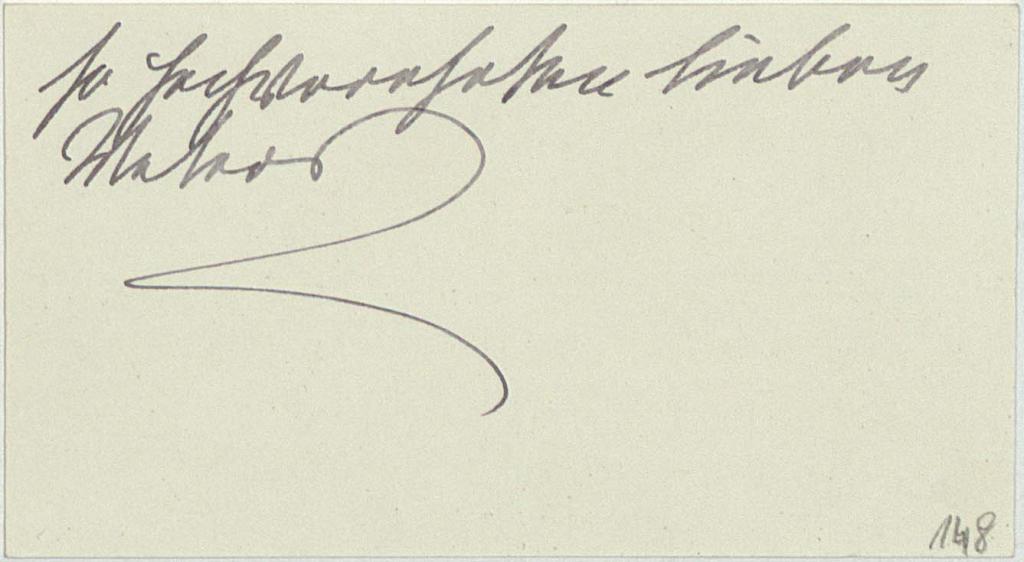 so hochverehrten lieben
Vaters
148